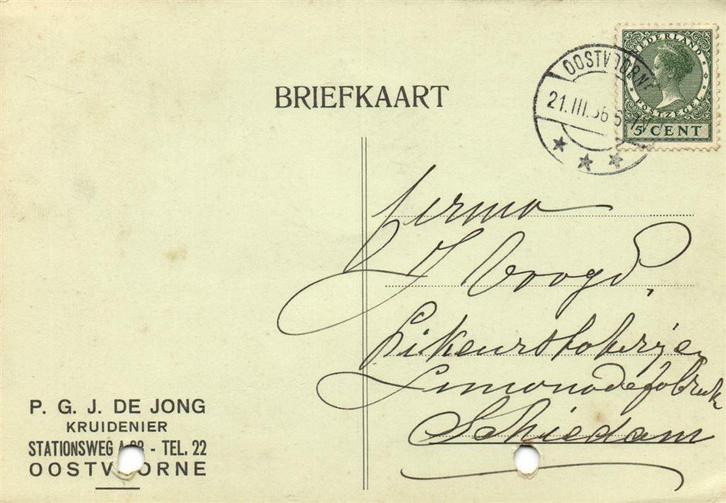 BRIEFKAART
OOSTVOORNE
21.III.36
NEDERLAND
POSTZEGEL
5 CENT
firma
J Voogd,
Likeurstokerije
Limonadefabriek
Schiedam
P. G. J. DE JONG
KRUIDENIER
STATIONSWEG - TEL. 22
OOSTVOORNE